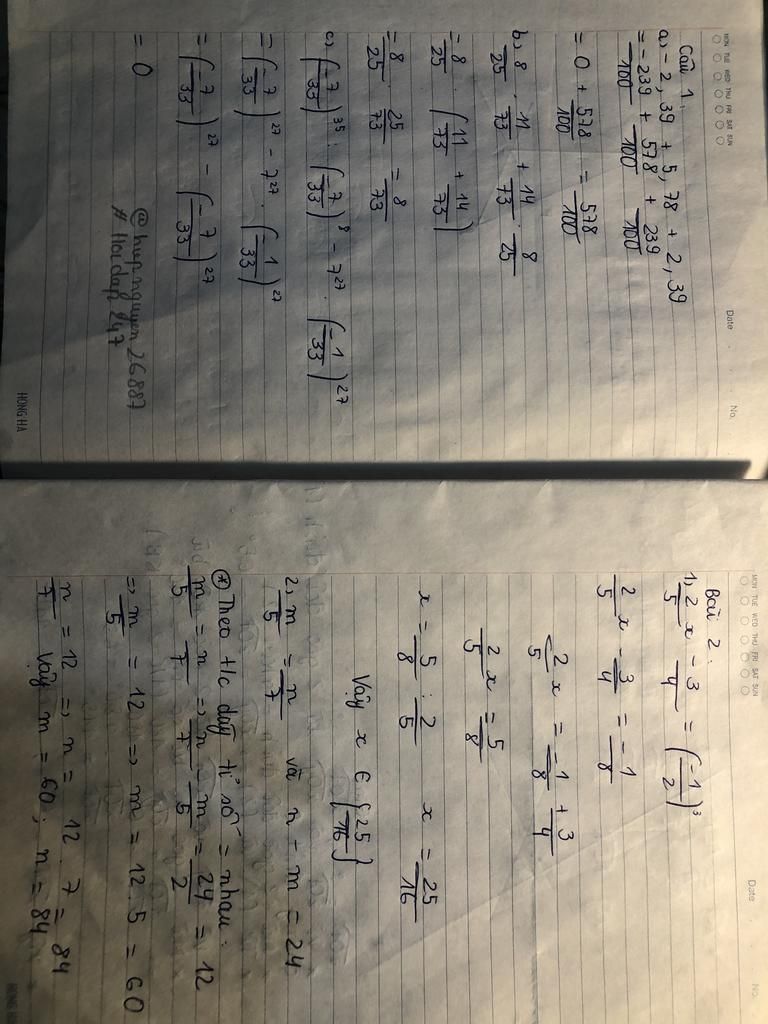 MON TUE WED THU FRI SAT SUN
Date
No.
Câu 1.
a, -2,39 + 5,78 + 2,39
= -239/100 + 578/100 + 239/100
= 0 + 578/100 = 578/100
b, 8/25 . 11/73 + 14/73 . 8/25
= 8/25 . (11/73 + 14/73)
= 8/25 . 25/73 = 8/73
c, (-7/33)^35 : (-7/33)^8 - 7^27 . (-1/33)^27
= (-7/33)^27 - 7^27 . (-1/33)^27
= (-7/33)^27 - (-7/33)^27
= 0
@hupnguyen26887
# Hoidap247
HONG HA
MON TUE WED THU FRI SAT SUN
Date
No.
Bài 2.
1, 2/5 x - 3/4 = (-1/2)^3
2/5 x - 3/4 = -1/8
2/5 x = -1/8 + 3/4
2/5 x = 5/8
x = 5/8 : 2/5 x = 25/16
Vậy x ∈ {25/16}
2, m/5 = n/7 và n - m = 24
⊛ Theo t/c dãy tỉ số = nhau:
m/5 = n/7 => n/7 - m/5 = 24/2 = 12
=> m/5 = 12 => m = 12 . 5 = 60
n/7 = 12 => n = 12 . 7 = 84
Vậy m = 60; n = 84
HONG HA